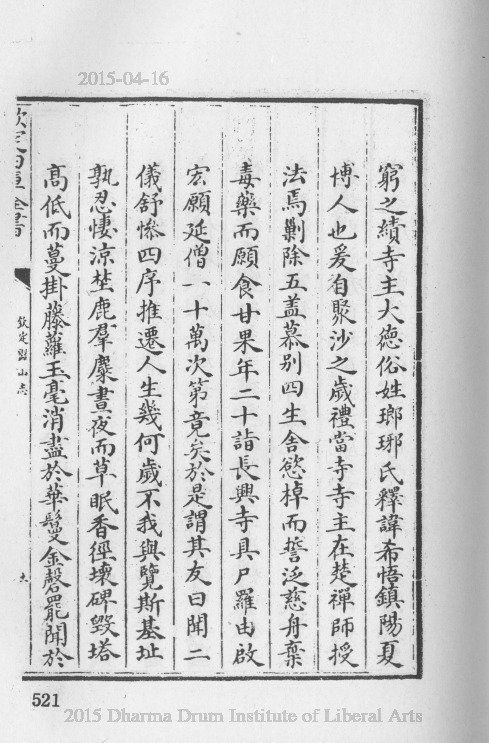 2015-04-16
窮之績寺主大德俗姓瑯琊氏釋諱希悟鎮陽夏
博人也爰自聚沙之歲禮當寺寺主在楚禪師授
法焉剿除五盖慕别四生舍慾棹而誓泛慈舟棄
毒藥而願食甘果年二十詣長興寺具尸羅由啟
宏願延僧一十萬次第竟矣於是謂其友曰聞二
儀舒慘四序推遷人生幾何歲不我與覽斯基址
孰忍悽涼埜鹿羣麋晝夜而草眠香徑壞碑毁塔
高低而蔓掛藤蘿玉毫消盡於華鬘金磬罷聞於
欽定四庫全書
欽定盤山志
521
2015 Dharma Drum Institute of Liberal Arts